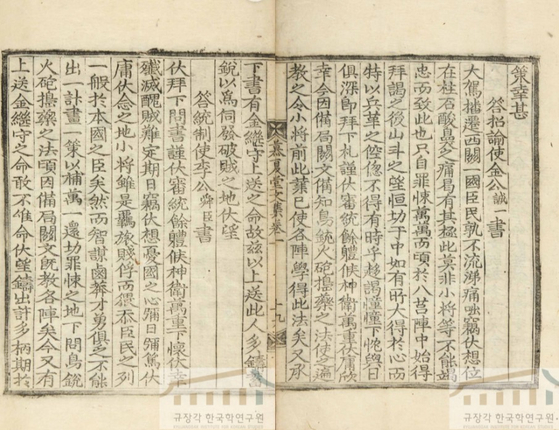 策幸甚
答招諭使金公誠一書
大駕播遷西關一國臣民孰不流涕痛哭竊伏想位
在柱石酸鼻之痛曷有其極此莫非小將等不能竭
忠而致此也只自罪悚萬萬而頃於八莒陣中始得
拜謁之後山斗之望恒切于中如有所大得於心而
特以兵革之倥傯不得有時乎趨謁憧憧下忱與日
俱深卽拜下札謹伏審統餘體候神衛萬重伏
幸今因備局關文備知鳥銃火砲搗藥之法使之遍
教之令小將前此已使各陣學得此法矣又承
慕夏堂文集卷一
十九
下書有金繼守上送之命故玆以上送此人多鑄鳥
銃以爲伺發破賊之地伏望
答統制使李公舜臣書
伏拜下問書謹伏審統餘體候神衛萬重下懷伏幸
殲滅醜賊難定期日竊伏想憂國之心弸日弸篤伏
庸伏念之地小將雖是羈旅賊俘而猥忝臣民之列
一般於本國之臣矣然而智謀莽才勇俱乏不能
出一計畫一策以補萬一還切罪悚之地下問鳥銃
火砲搗藥之法頃因備局關文旣教各陣矣今又有
上送金繼守之命敢不惟命伏望鑄出許多柄期於
규장각 한국학연구원
규장각 한국학연구원